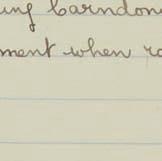 ung barndon
ment when ra